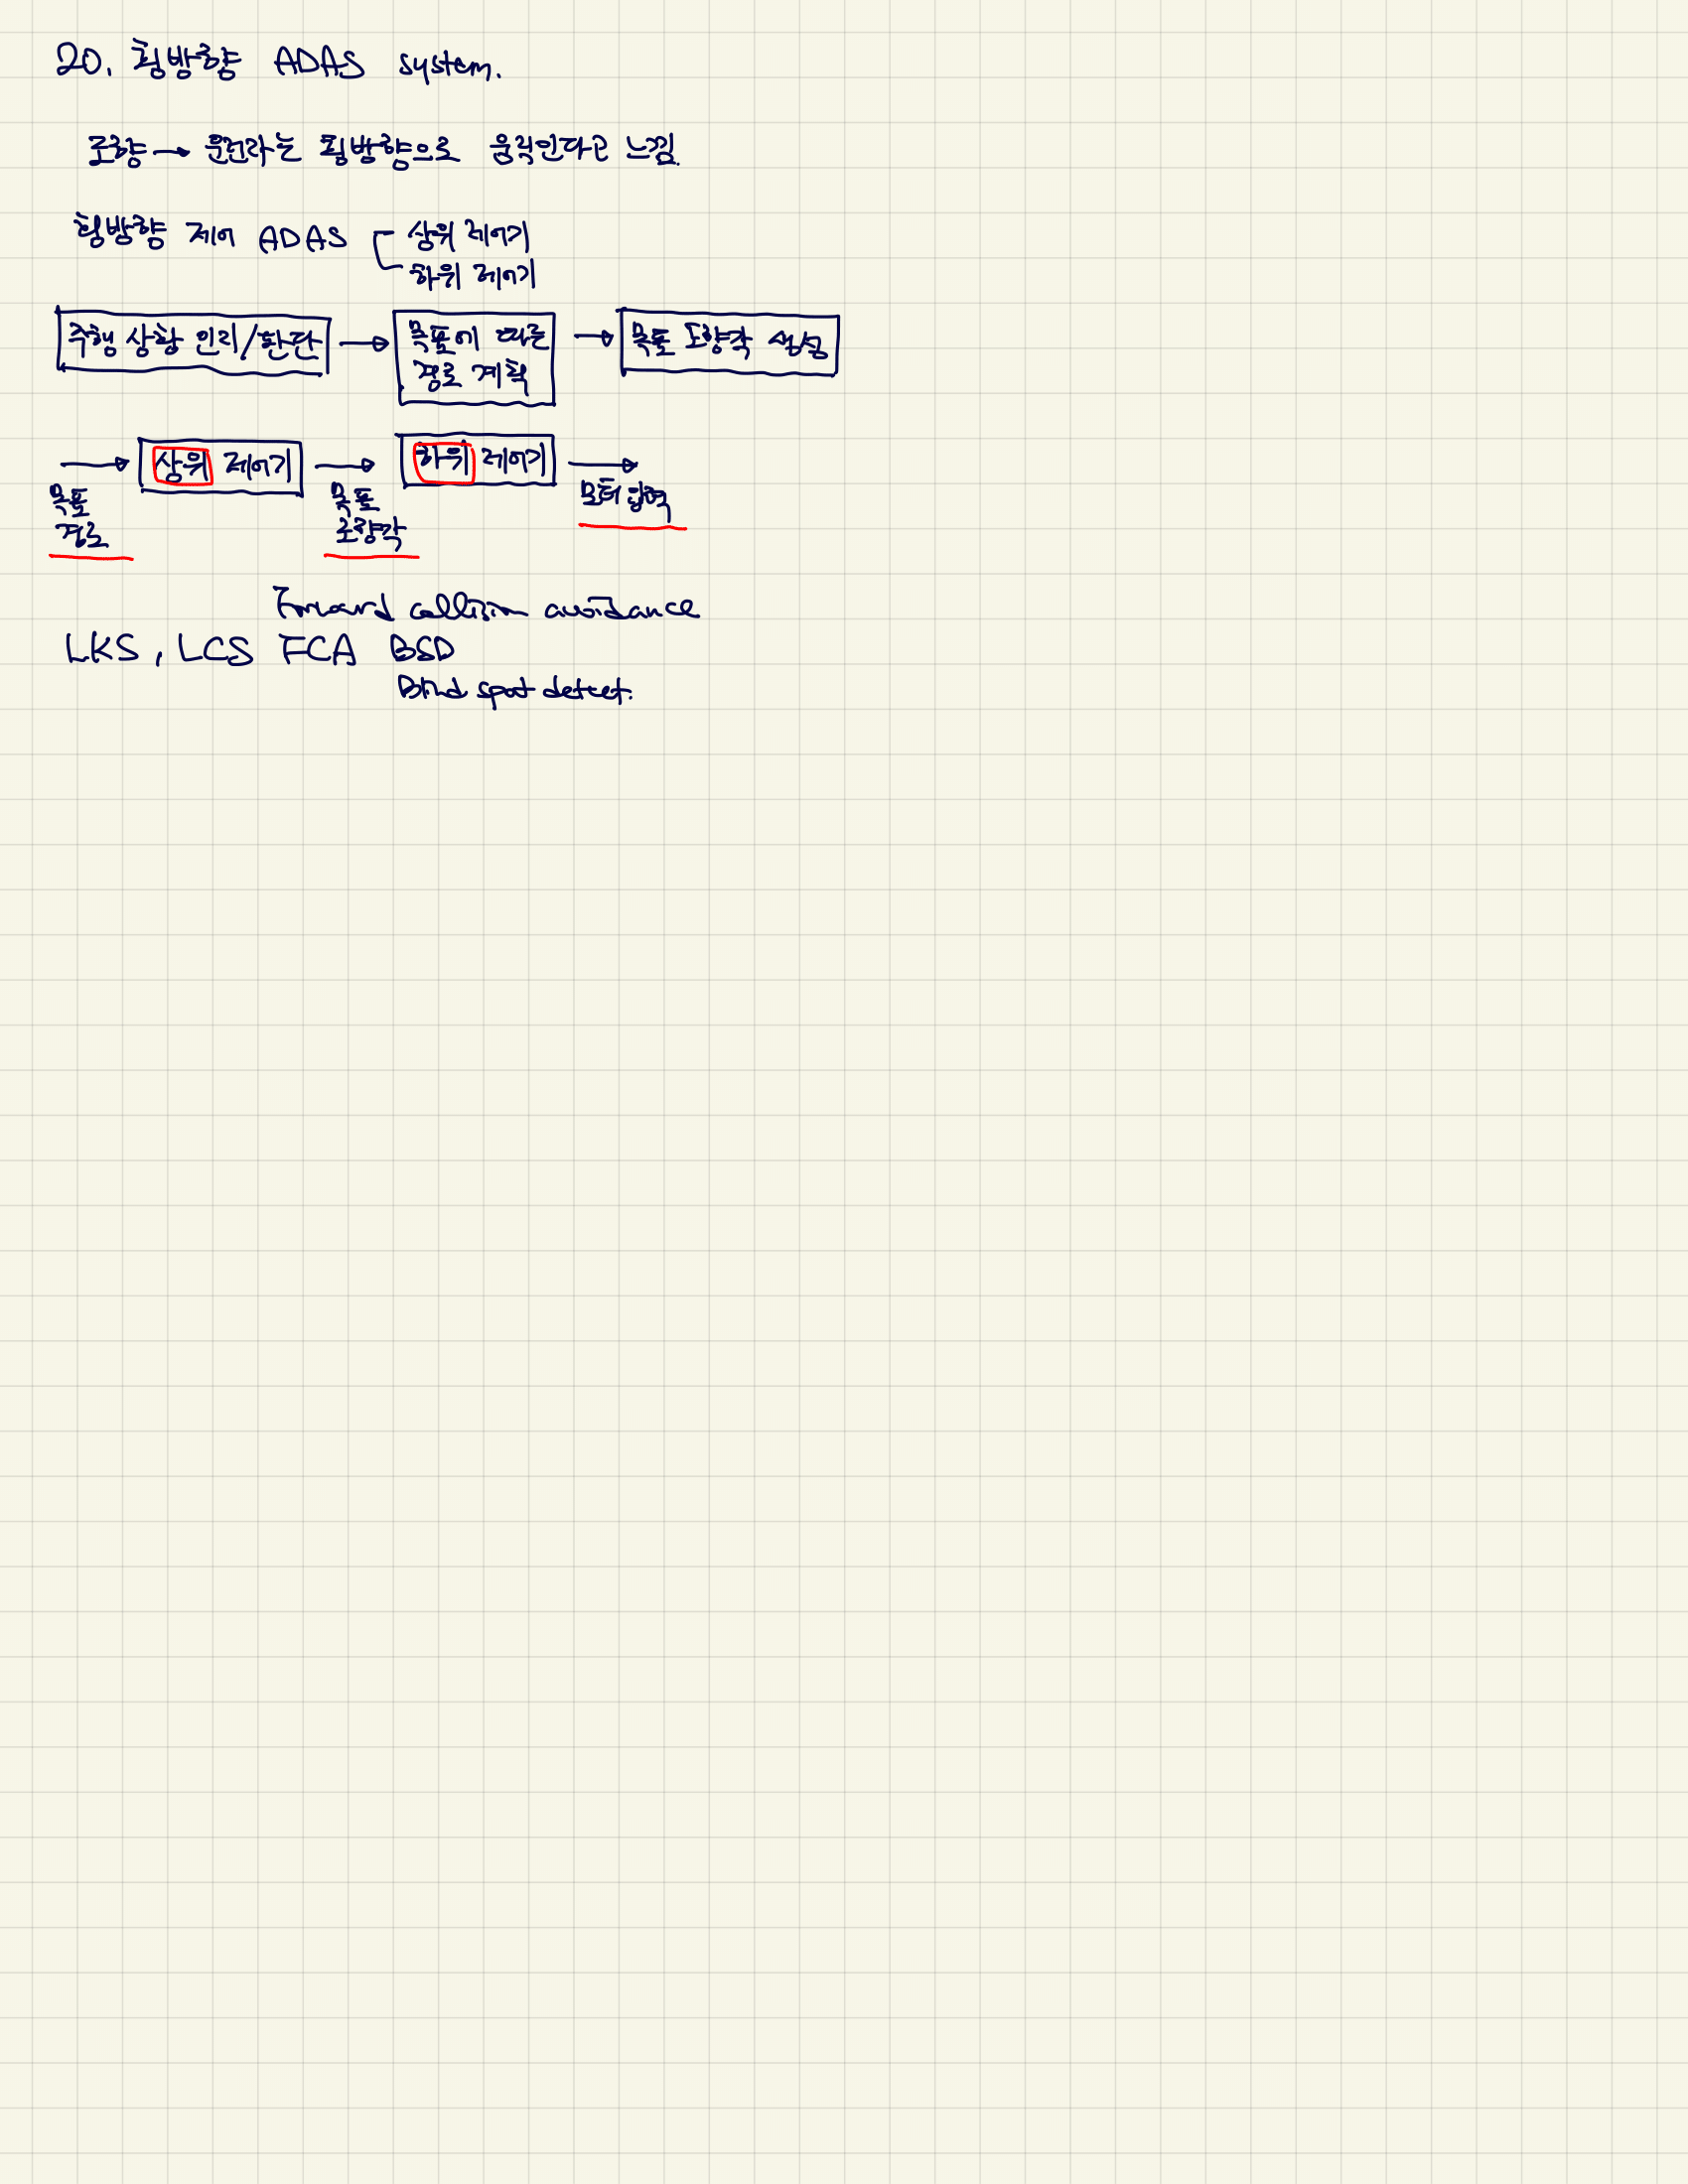 20. 횡방향 ADAS system.
조향 → 운전자는 횡방향으로 움직인다고 느낌.
횡방향 제어 ADAS
상위 제어기
하위 제어기
주행 상황 인지/판단 → 목표에 따른 → 목표 조향각 설정
경로 계획
→ 상위 제어기 → 하위 제어기 →
목표 목표 모터 입력
경로 조향각
Forward collision avoidance
LKS, LCS FCA BSD
Blind spot detect.